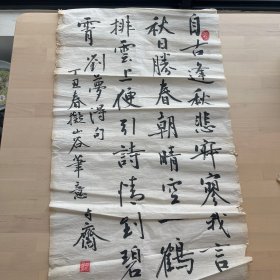 自古逢秋悲寂寥我言
秋日勝春朝晴空一鶴
排雲上便引詩情到碧
霄劉夢得句
丁丑春擬山谷筆意